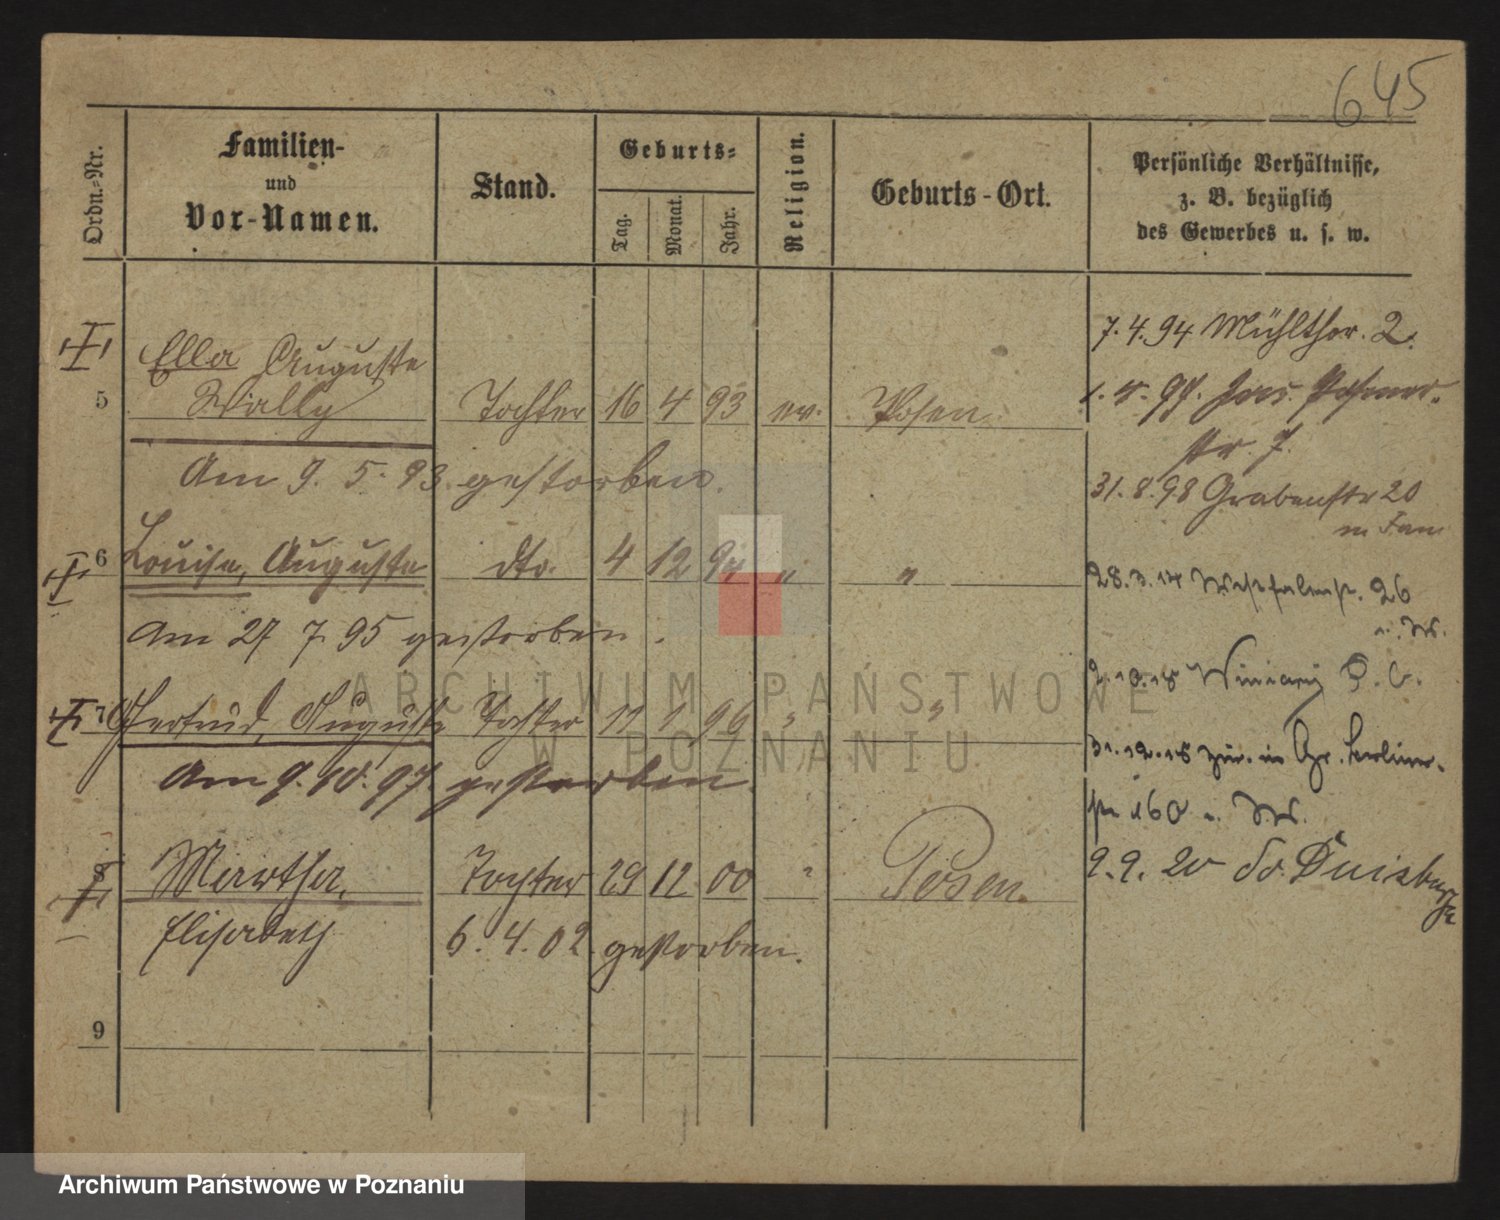 645
Ordn.-Nr.
Familien-
und
Vor-Namen.
Stand.
Geburts-
Tag.
Monat.
Jahr.
Religion.
Geburts-Ort.
Persönliche Verhältnisse,
z. B. bezüglich
des Gewerbes u. s. w.
7. 4. 94 Mühlthor. 2.
Ella Auguste
5 Wally Tochter 16 4 93 ev. Posen
1. 97. Posener-
str. 7.
Am 9. 5. 93. gestorben.
31. 8. 98 Grabenstr 20
m Fam
6 Louise, Auguste dto. 4 12 94 " "
28. 3. 14 Westfalenstr. 26
Am 27 7. 95 gestorben.
Winiary
7 Gertrud, Auguste Tochter 11 1 96 " "
31. 12. 18 zur. in Gr. Berliner-
Am 9. 10. 97. gestorben.
str 160
8 Martha, Tochter 29 12 00 " Posen.
9. 9. 20 Duisburg
Elisabeth 6. 4. 02. gestorben.
9
ARCHIWUM PAŃSTWOWE
W POZNANIU
Archiwum Państwowe w Poznaniu